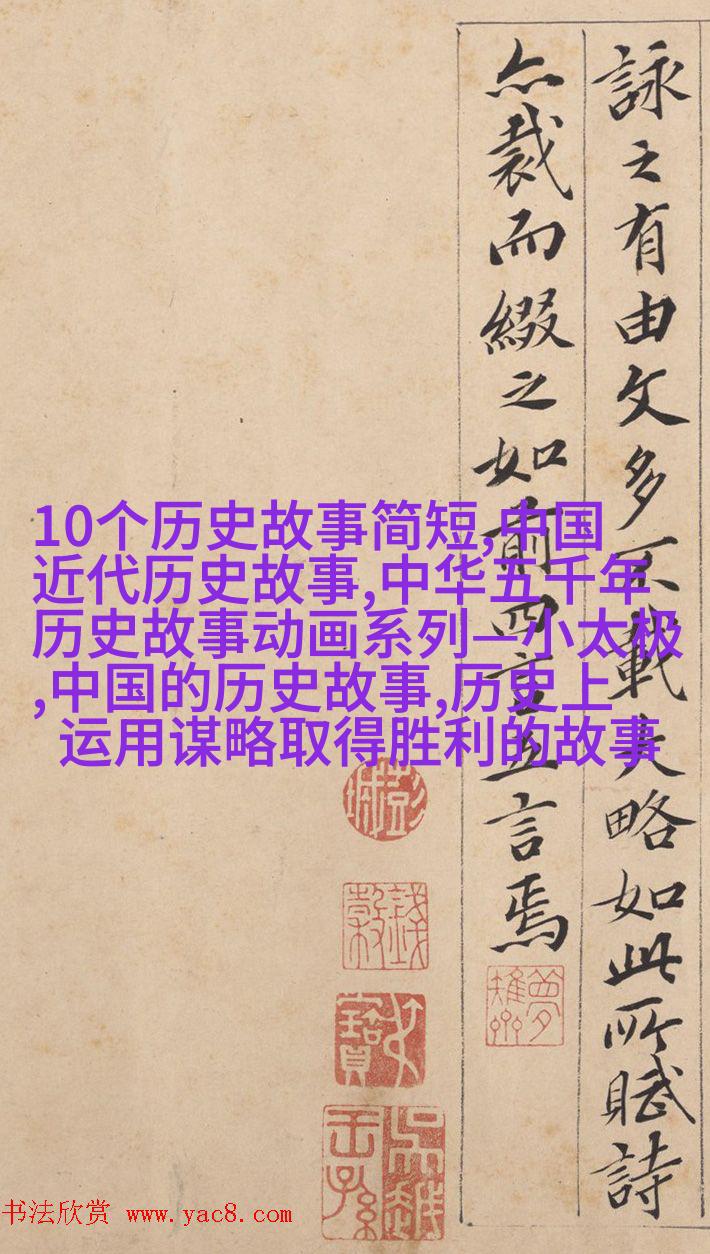 詠之有由文多不載大略如此所賦詩
亦裁而綴之如前四言五言焉
10个历史故事简短,中国
近代历史故事,中华五千年
历史故事动画系列—小太极
,中国的历史故事,历史上
运用谋略取得胜利的故事
彭城
錢榖
吳越王孫
书法欣赏 www.yac8.com